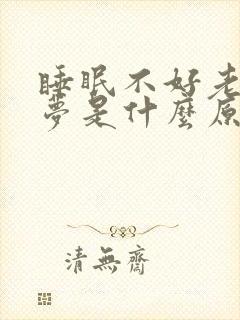 睡眠不好老
夢是什麼原
清無齋